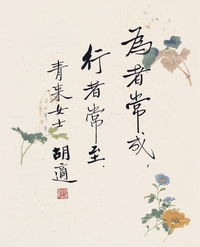 為者常成，
行者常至．
青來女士
胡適